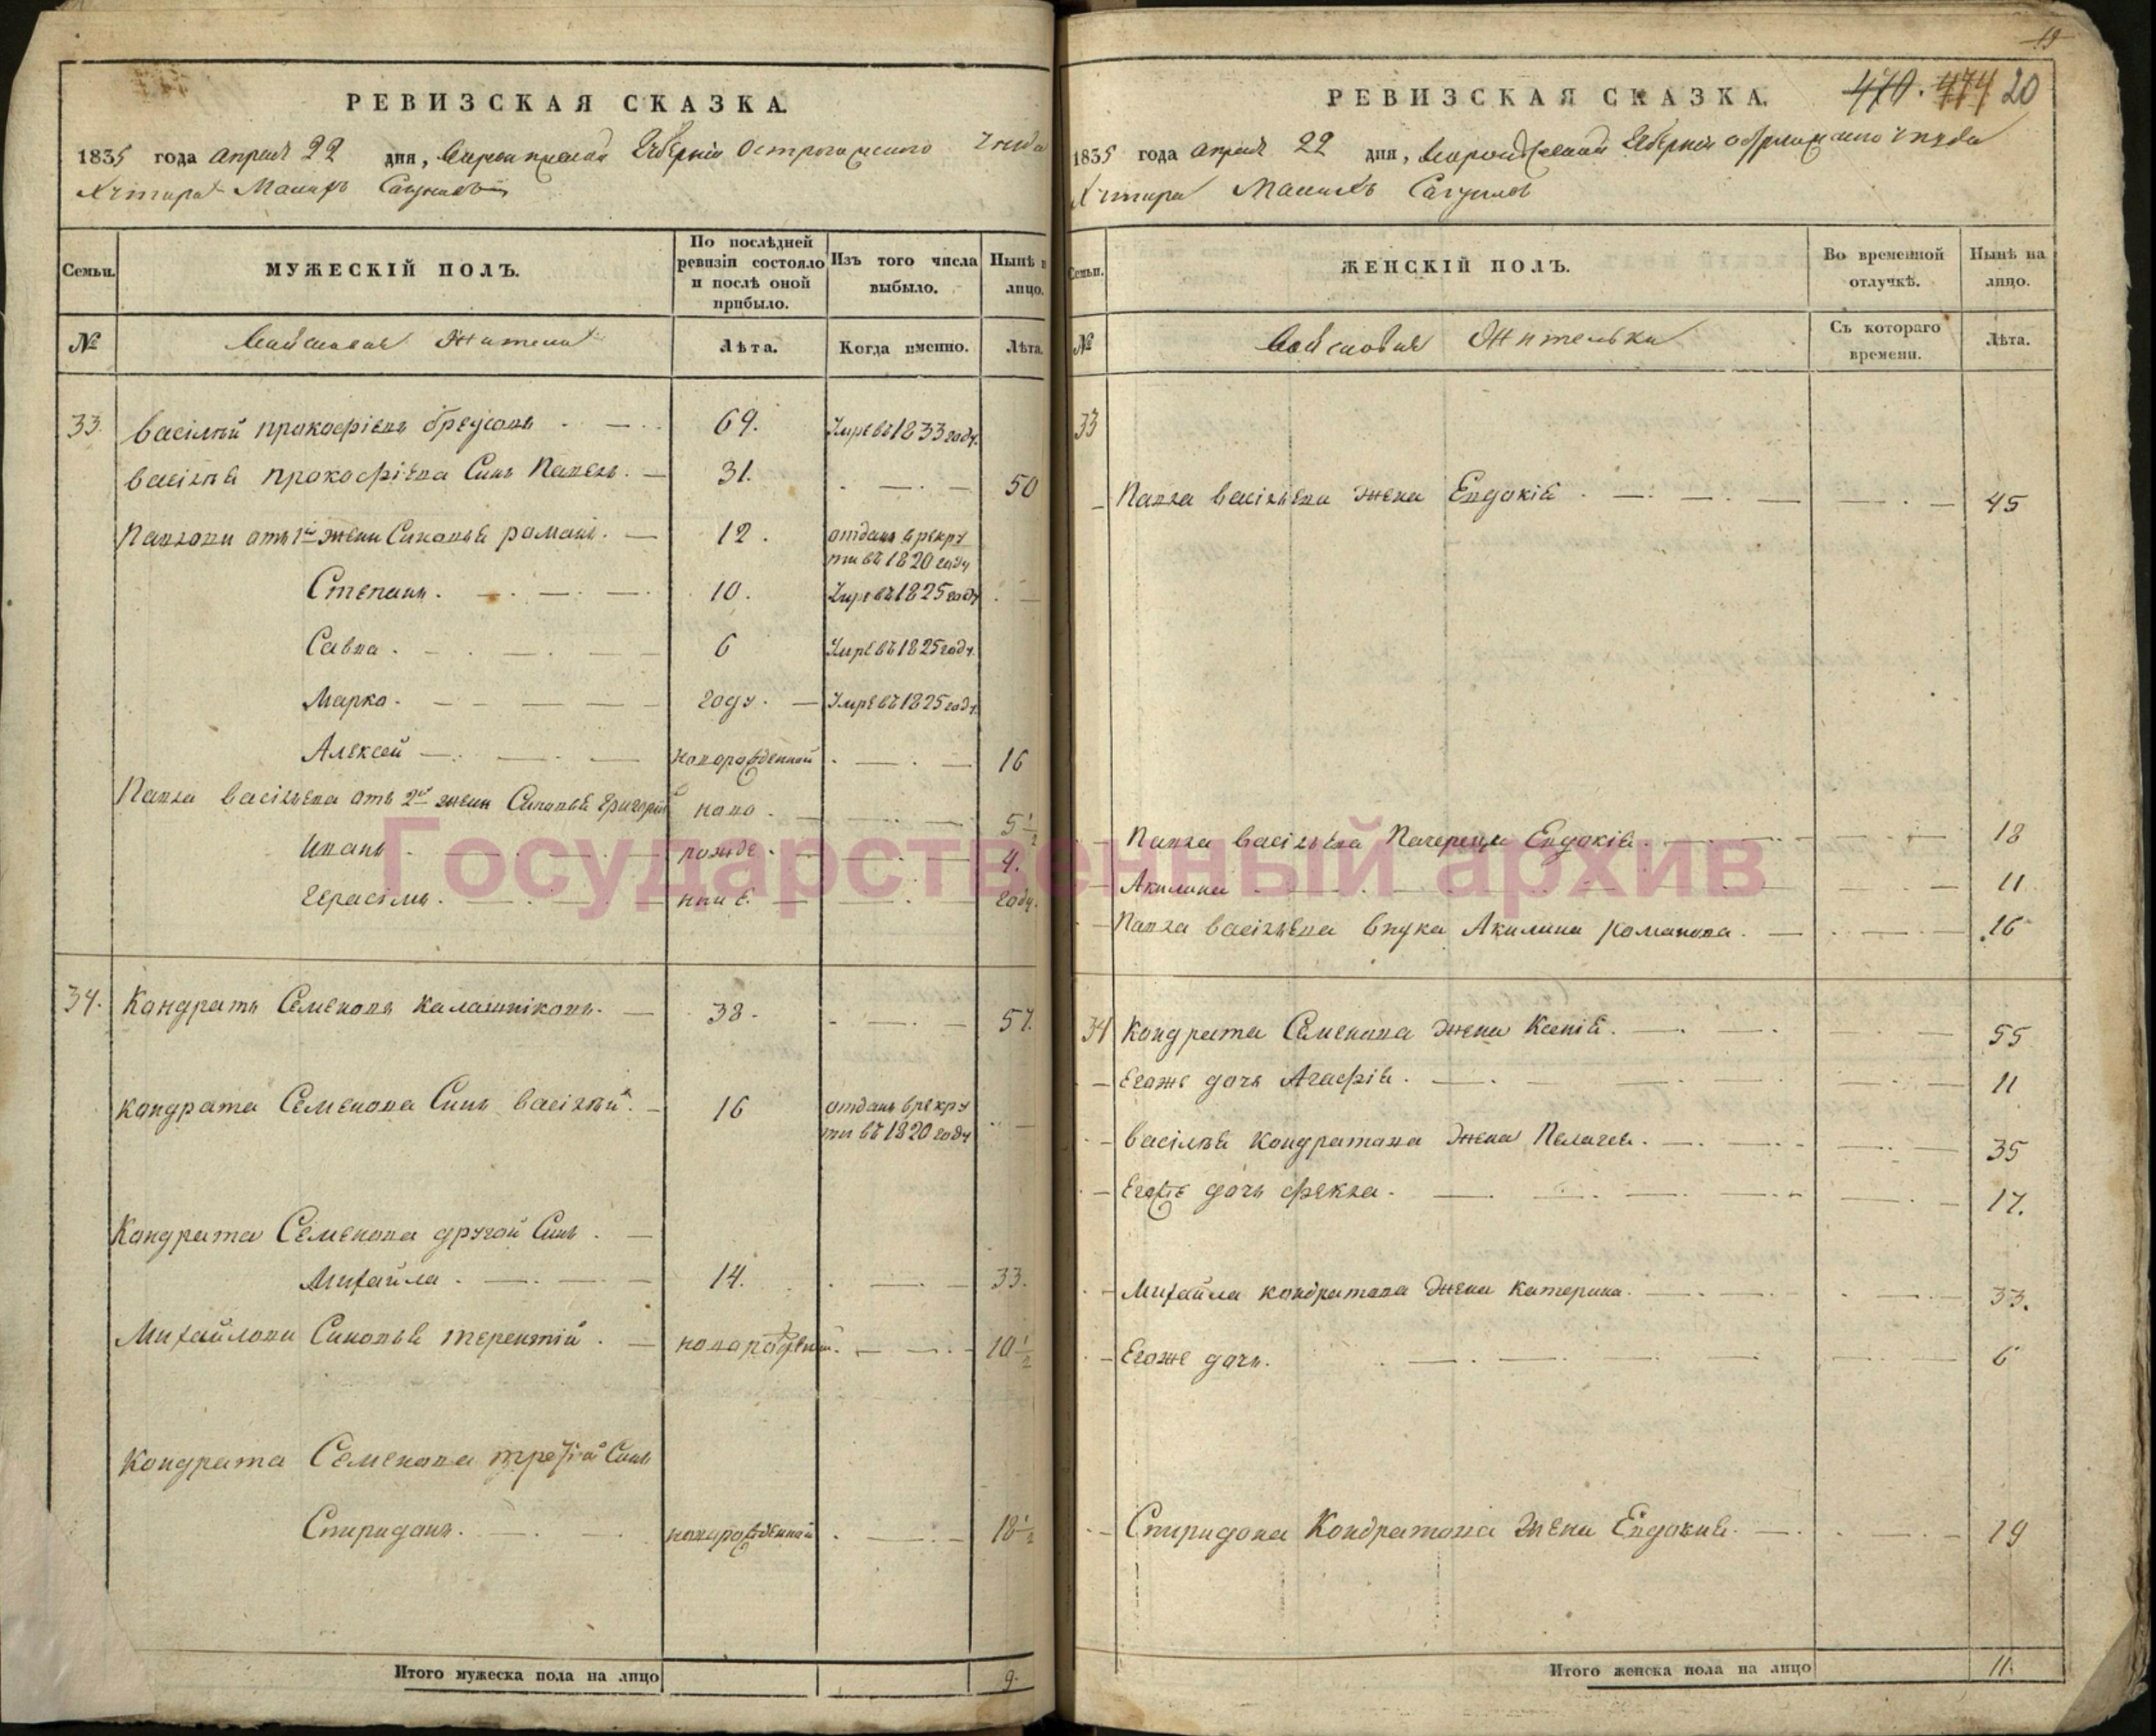 РЕВИЗСКАЯ СКАЗКА.
1835 года апреля 22 дня, Воронежской Губернии Острогожского уезда
Хутора
МУЖЕСКІЙ ПОЛЪ.
Семьи.
По послѣдней ревизіи состояло и послѣ оной прибыло.
Изъ того числа выбыло.
Нынѣ на лицо.
№
Войсковые Жители
Лѣта.
Когда именно.
Лѣта.
33. Васілий Прокофіевъ 69. Умре въ 1833 году.
Васілья Прокофіева Сынъ Павелъ. 31. 50
Павловы отъ 1й жены Сыновья Романъ. 12. отданъ врекру
ты въ 1820 году
Степанъ. 10. Умре въ 1825 году
Савва. 6 Умре въ 1825 году.
Марко. году. Умре въ 1825 году.
Алексей новорожденной 16
Павла Васільева отъ 2й жены Сыновья Григорий ново 5 1/2
Иванъ рожде 4.
Герасімъ. ныие. году.
34. Кондратъ Семеновъ Калашніковъ. 38. 57.
Кондрата Семенова Сынъ Васілий. 16 отданъ врекру
ты въ 1820 году
Кондрата Семенова другой Сынъ.
Михайла. 14. 33.
Михайловы Сыновья Терентій. новорожденной. 10 1/2
Кондрата Семенова третій Сынъ
Спиридонъ. новорожденной 18 1/2
Итого мужеска пола на лицо 9.
19
470. 474 20
РЕВИЗСКАЯ СКАЗКА.
1835 года апреля 22 дня, Воронежской Губернии Острогожского уезда
Хутора
Семьи.
ЖЕНСКІЙ ПОЛЪ.
Во временной отлучкѣ.
Нынѣ на лицо.
№
Войсковые Жительки
Съ котораго времени.
Лѣта.
33
Павла Васільева жена Евдокія. 45
Павла Васільева Евдокія. 18
Акилина 11
Павла Васільева внука Акилина Романова. 16
34 Кондрата Семенова жена Ксенія. 55
Егоже дочь Агафія. 11
Васілья Кондратова жена Пелагея. 35
Егоже дочь Фекла. 17.
Михайла Кондратова жена Катерина. 33.
Егоже дочь. 6
Спиридона Кондратова жена Евдокия. 19
Итого женска пола на лицо 11.
Государственный архив